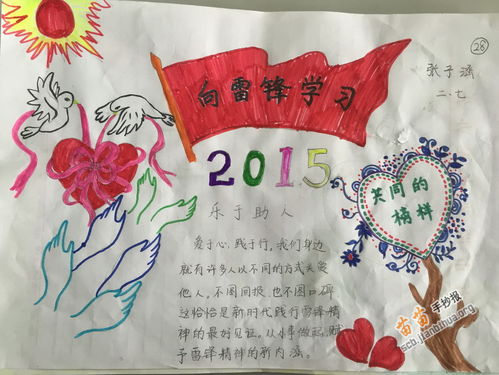 向雷锋学习
28
张子涵
二.七
2015
共同的
榜样
乐于助人
爱于心，践于行，我们身边
就有许多人以不同的方式关爱
他人。不图回报，也不图口碑
这恰恰是新时代践行雷锋精
神的最好见证。从小事做起，赋
予雷锋精神的新内涵。
苗苗手抄报
scb.jianbihua.org